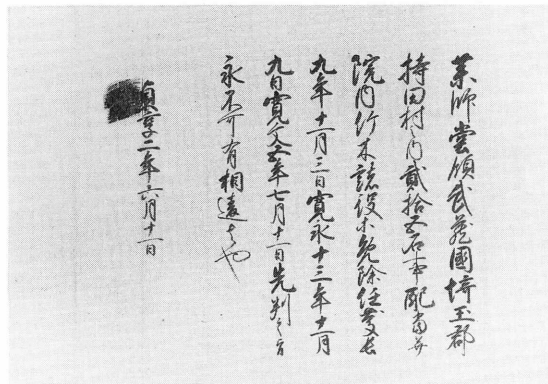 薬師堂領武蔵國埼玉郡
持田村之内貳拾五石事配當并
院内竹木諸役等免除任慶長
九年十一月三日寛永十三年十一月
九日寛文五年七月十一日先判之旨
永不可有相違者也
貞享二年六月十一日